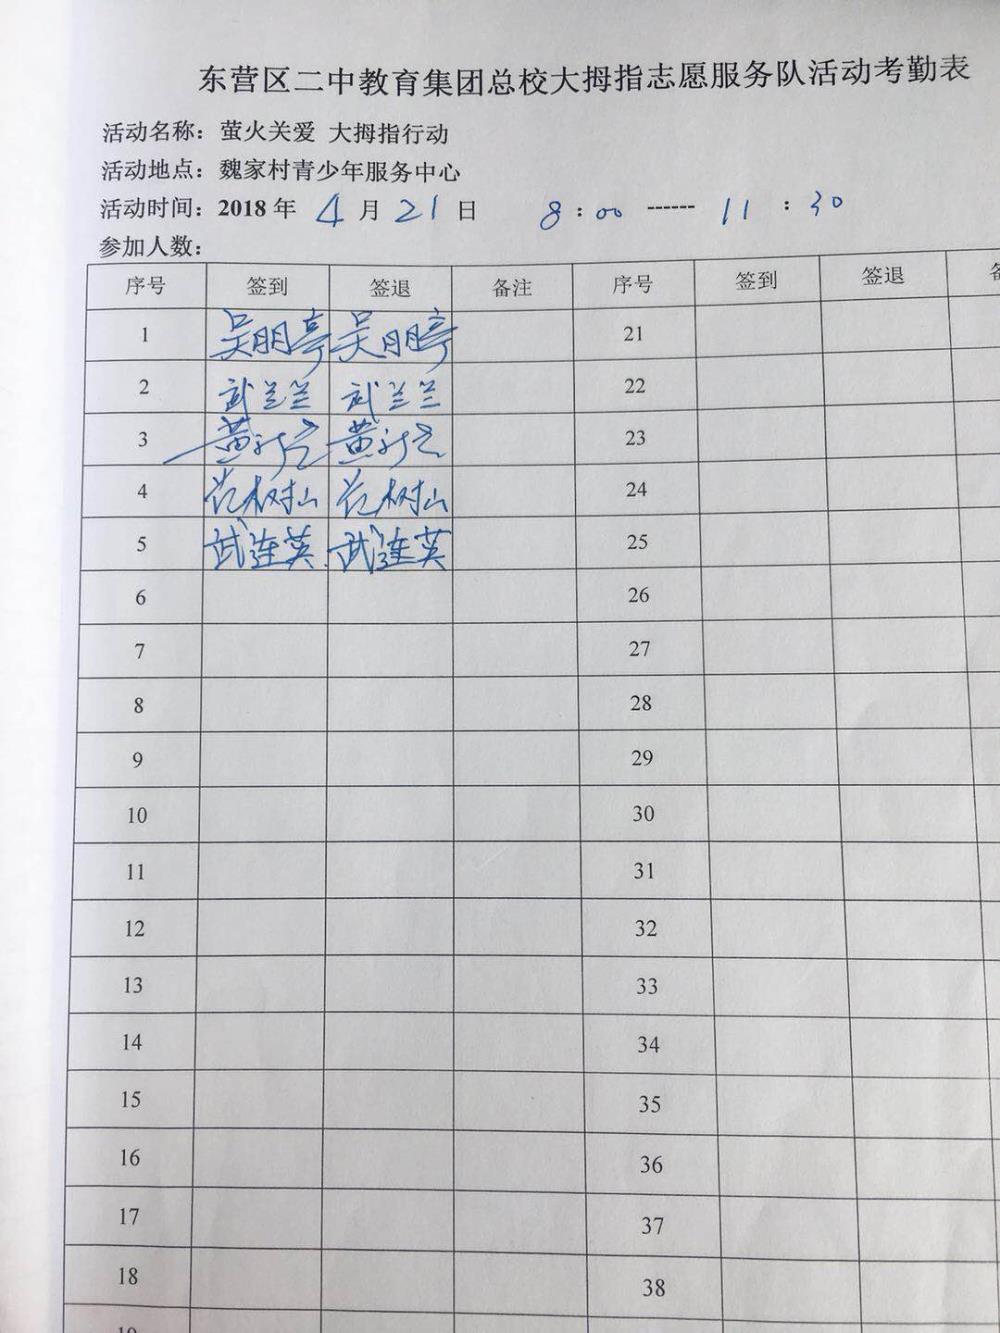 东营区二中教育集团总校大拇指志愿服务队活动考勤表
活动名称：萤火关爱 大拇指行动
活动地点：魏家村青少年服务中心
活动时间：2018 年 4 月 21 日 8：00 ------ 11：30
参加人数：
序号 签到 签退 备注 序号 签到 签退
1 吴朋亭 吴朋亭 21
2 武兰兰 武兰兰 22
3 黄 黄 23
4 范树山 范树山 24
5 武连英 武连英 25
6 26
7 27
8 28
9 29
10 30
11 31
12 32
13 33
14 34
15 35
16 36
17 37
18 38